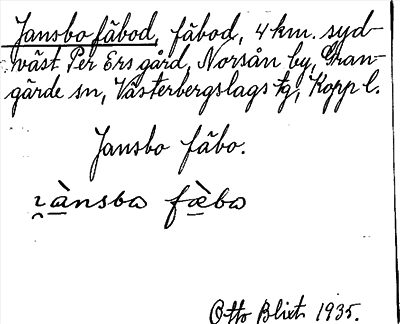 Jansbo fäbod, fäbod, 4 km. syd-
väst Per Ers gård, Norsån by, Gran-
gärde sn, Västerbergslags tg, Kopp l.
Jansbo fäbo.
ı̯ànsbo fæ̀bo
Otto Blixt 1935.